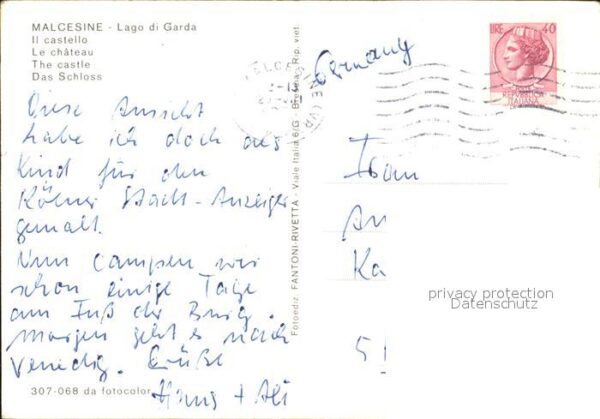 MALCESINE - Lago di Garda
Il castello
Le château
The castle
Das Schloss
Diese Ansicht
habe ich doch als
Kind für den
Kölner Stadt-Anzeiger
gemalt.
Nun campen wir
schon einige Tage
am Fuß der Burg.
Morgen geht es nach
Venedig. Grüße
Hans +
307-068 da fotocolor
Fotoediz. FANTONI-RIVETTA - Viale Italia 6/G - Brescia - Rip. viet.
LIRE 40
REPVBBLICA
ITALIANA
Germany
Frau
An
Ka
5
privacy protection
Datenschutz